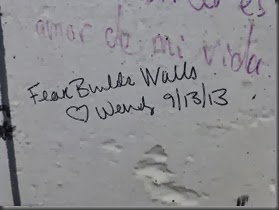 es
amor de mi vida
Fear Builds Walls
♡ Wendy 9/13/13